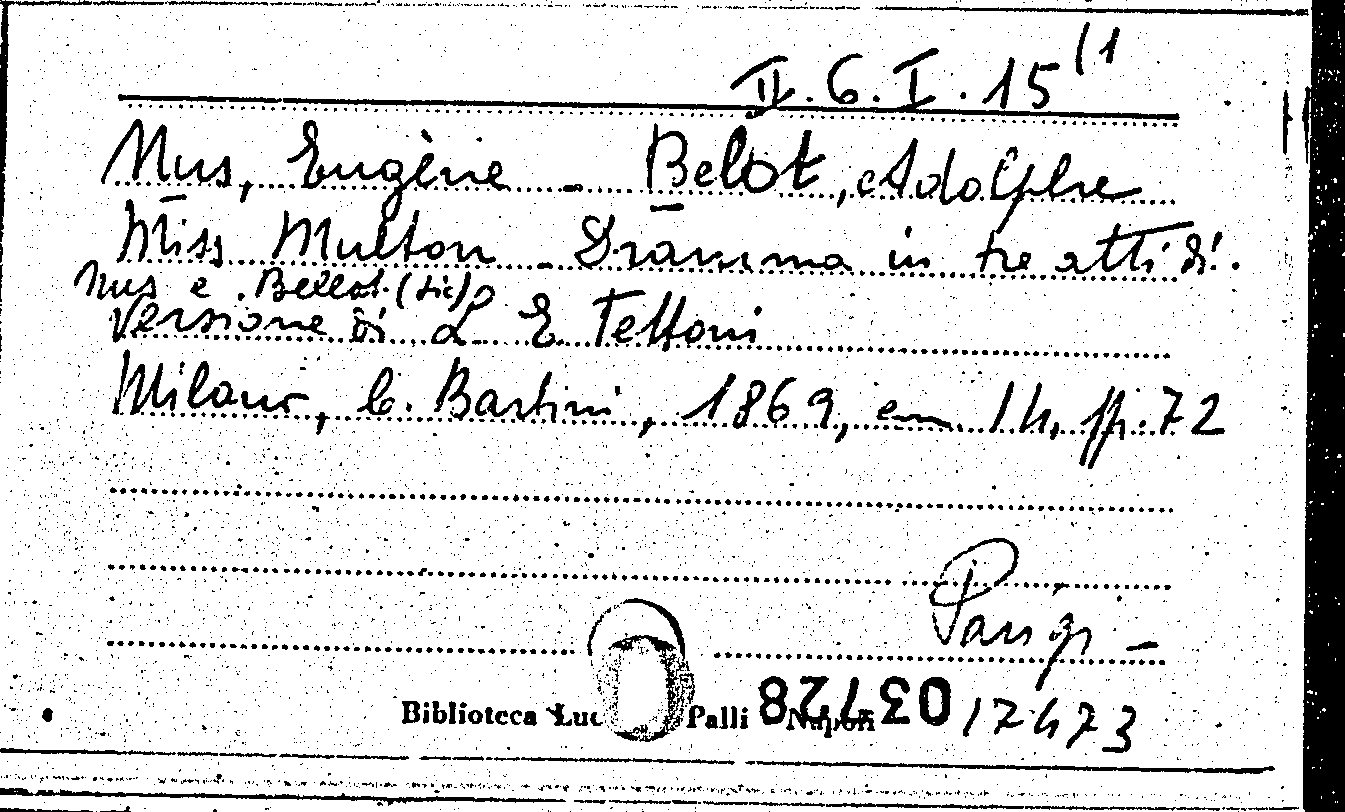 II. 6. I. 15 (1
Nus, Eugène - Belot, Adolphe
Miss Multon - Dramma in tre atti di
Nus e Bellot (sic)
Versione di L. E. Tettoni
Milano, C. Barbini, 1869, in 14, pp. 72
Parigi -
Biblioteca Luc Palli Napoli 12473